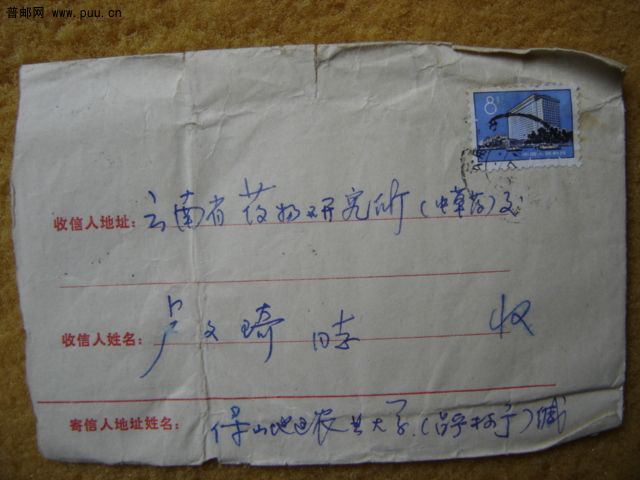 普邮网 www.puu.cn
8
中国人民邮政
收信人地址：云南省药物研究所(中草药)交
收信人姓名：卢文琦 收
寄信人地址姓名：保山地区农共大学.